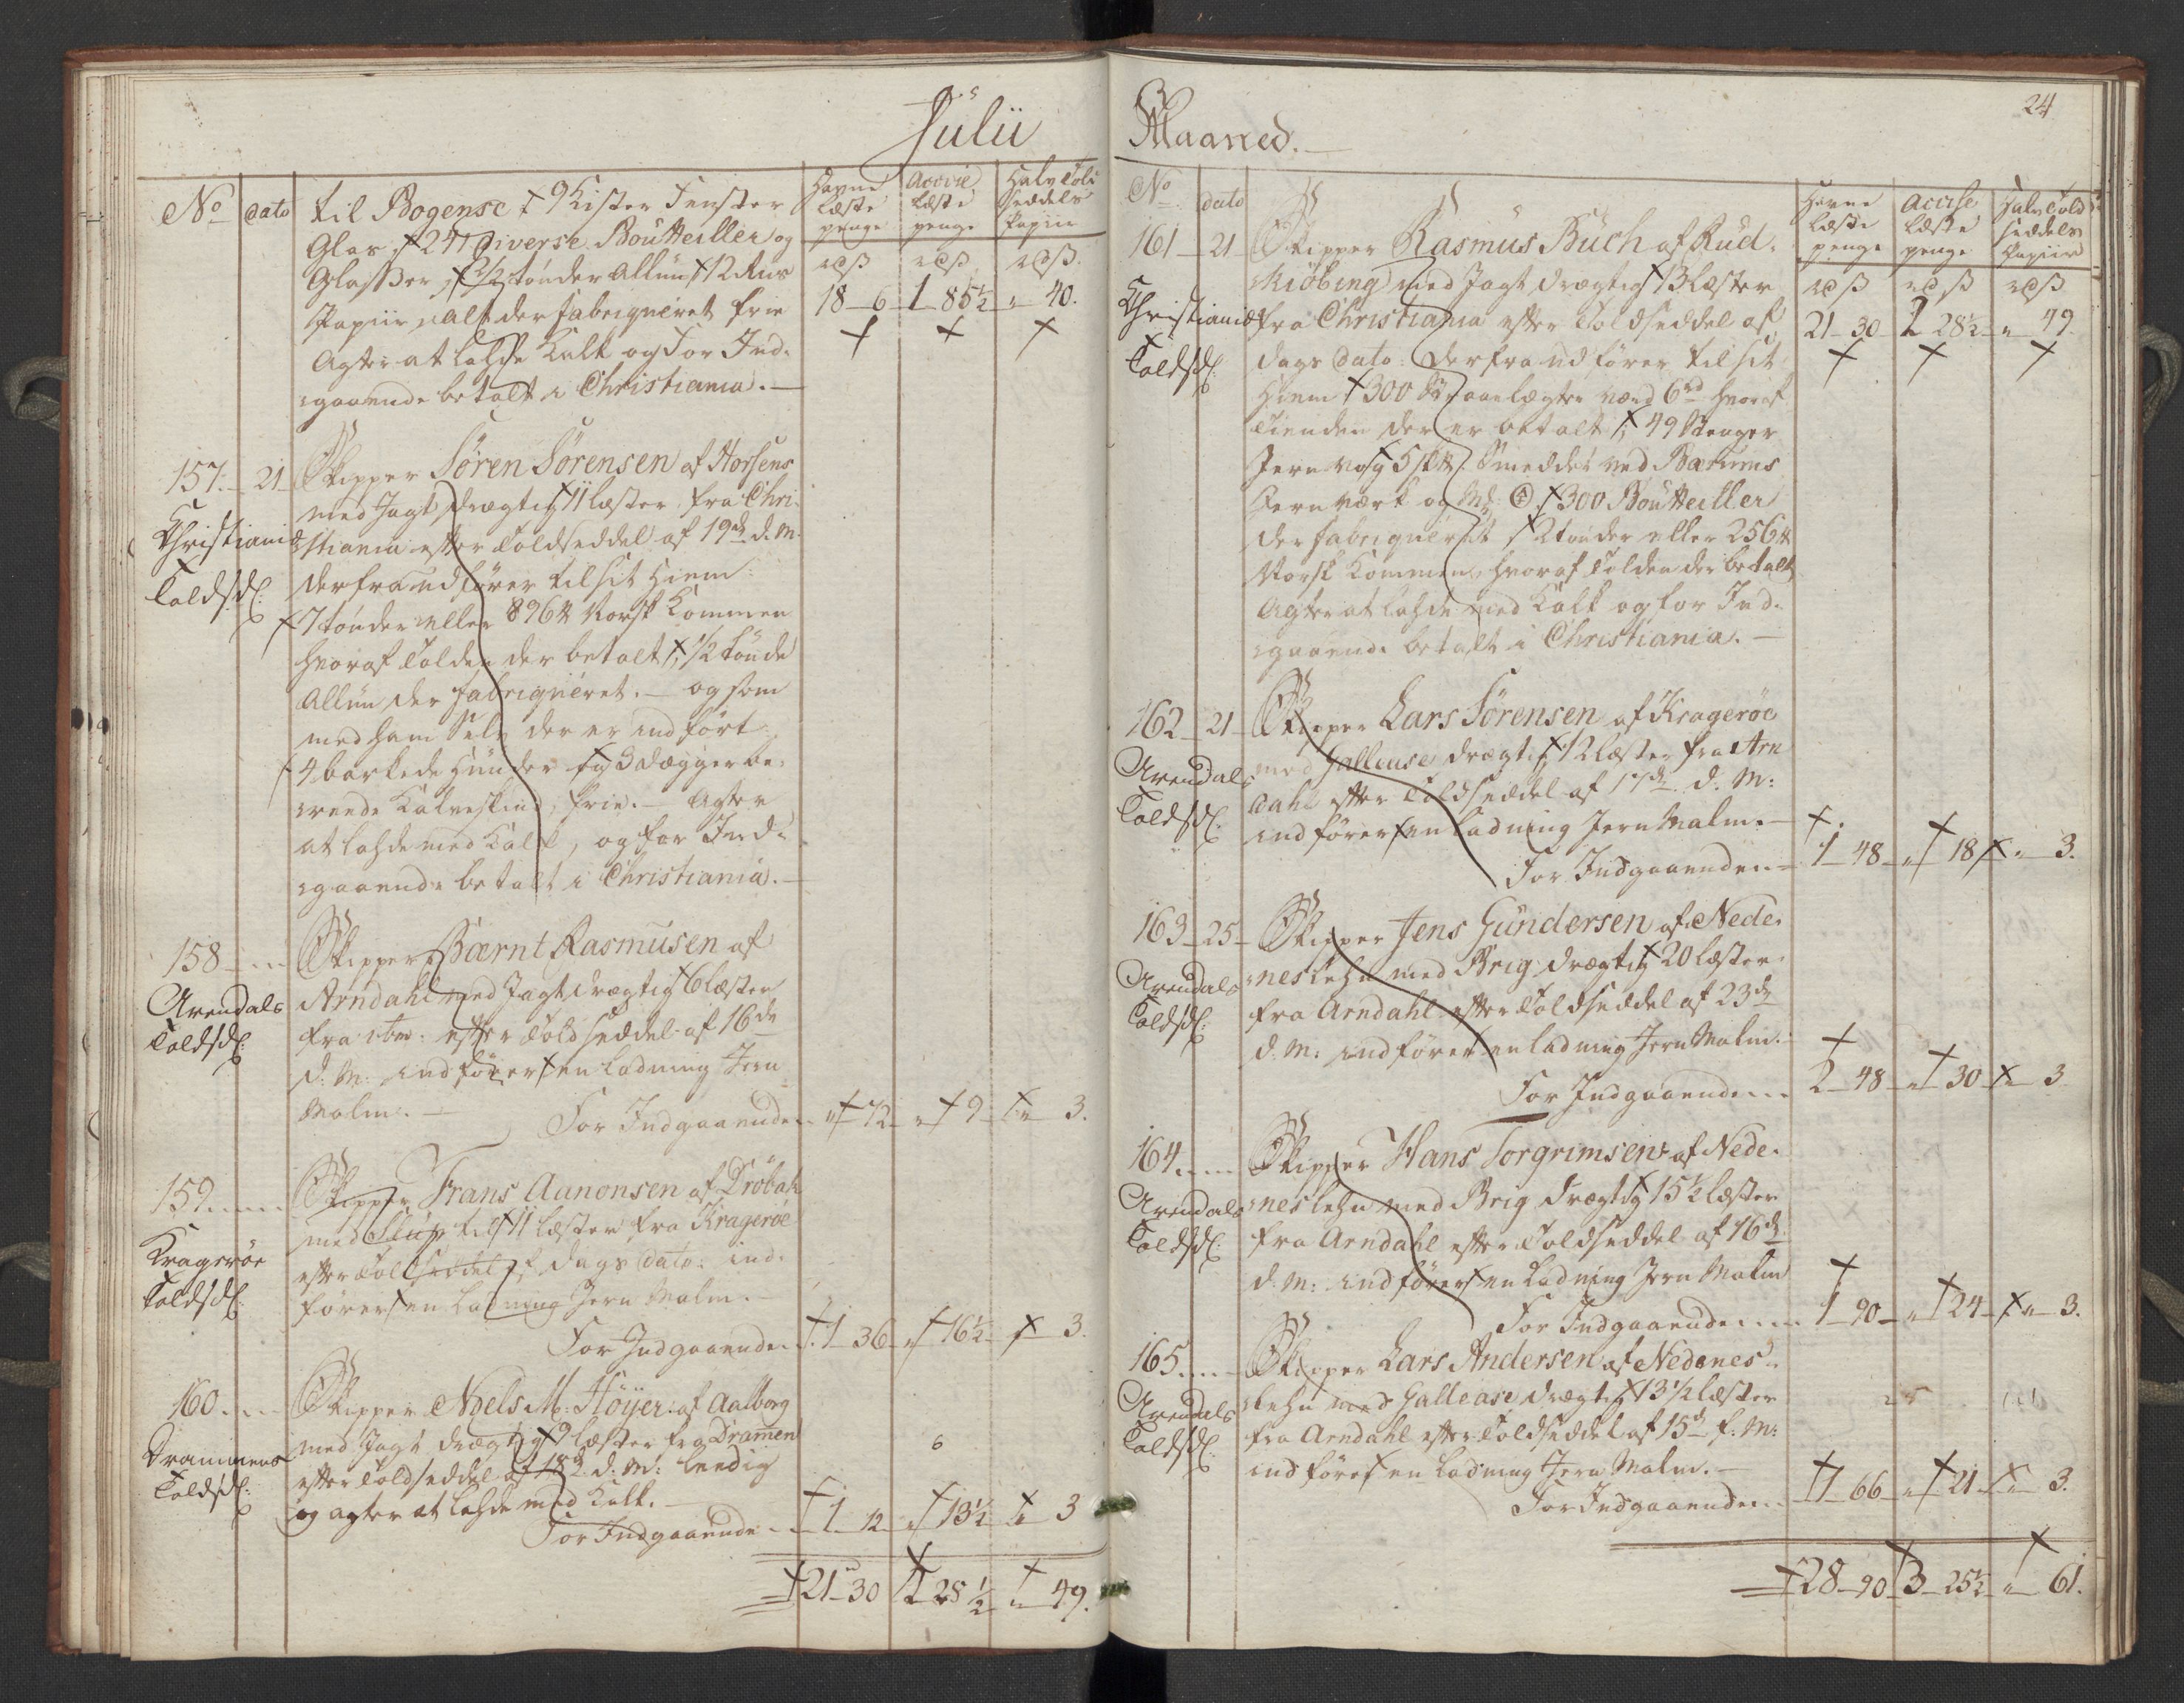 Julii
No
dato
Havne
læste
penge
Accise
læste
penge
Halv Told
seddels
Papiir
rd ß
rd ß
rd ß
til Bogense 9 Kister Fenster
Glas, 247 Diverse Boutteiller og
Glasser, 2 1/2 tønder Allun 12 Riis
Papiir, alt der fabriqueret frie
Agter at lahde Kalk og For Ind-
gaaende betalt i Christiania.
18 6
1 85 1/2
" 40.
157. 21
Christianiæ
Toldsdl:
Skipper Sören Sörensen af Horsens
med Jagt, drægtig 11 læster fra Chri-
stiania efter Toldseddel af 19de d. M.
derfra udfører til sit Hiem
7 tønder eller 896 ℔ Norsk Kommen
hvoraf Tolden der betalt, 1/2 tønde
Allun der fabriqueret. og som
med ham Selv der er indført
4 barkede Huuder og 3
Kalveskind, frie. Agter
at lahde med Kalk, og for Ind-
gaaende betalt i Christiania.
158
Arendals
Toldsdl:
Skipper Bærnt Rasmusen af
Arndahl med Jagt drægtig 6 læster
fra ibm: efter Toldseddel af 16de
d: M: indfører en ladning Jern
Malm.
For Indgaaende " 72 " 9 " 3.
159
Kragerøe
Toldsdl:
Skipper Frans Aanonsen af Dröbak
med Slup til 11 læster fra Krageröe
efter Toldseddel af dags dato: ind-
fører en ladning Jern Malm.
For Indgaaende 1 36 " 16 1/2 " 3.
160
Drammens
Toldsdl:
Skipper Niels M: Höyer af Aalborg
med Jagt drægtig 9 læster fra Dramen
efter Toldseddel af 18de d: M: leedig
og agter at lahde med Kalk.
For Indgaaende 1 12 " 13 1/2 " 3
6
21 30 2 28 1/2 " 49.
Maaned.
24
No
dato
Havne
læste
penge
Accise
læste
penge
Halv Told
seddels
Papiir
rd ß
rd ß
rd ß
21 30
2 28 1/2
" 49.
161 21
Christianiæ
Toldsdl:
Skipper Rasmus Buch af Rud-
kiöbing med Jagt drægtig 13 læster
fra Christiania efter Toldseddel af
dags dato: derfra udfører til sit
Hiem 300 værd 6 rd hvoraf
Tienden der er betalt, 49 Stænger
Jern Smeddet ved Bærums
Jernværk og 300 Boutteiller
der fabriqueret 2 tønder eller 256 ℔
Norsk Kommen, hvoraf Tolden der betalt
Agter at lahde med Kalk og for Ind-
gaaende betalt i Christiania.
162 21
Arendals
Toldsdl:
Skipper Lars Sörensen af Krageröe
med Gallease drægtig 12 læster fra Arn
dahl efter Toldseddel af 17de d: M:
indfører en ladning Jern Malm.
For Indgaaende 1 48 " 18 " 3.
163 25
Arendals
Toldsdl:
Skipper Jens Gundersen af Nede-
nes lehn med Brig drægtig 20 læster
fra Arndahl efter Toldseddel af 23de
d: M: indfører en ladning Jern Malm.
For Indgaaende 2 48 " 30 " 3
164
Arendals
Toldsdl:
Skipper Hans Torgrimsen af Nede-
nes lehn med Brig drægtig 15 1/2 læster
fra Arndahl efter Toldseddel af 16de
d: M: indfører en ladning Jern Malm
For Indgaaende 1 90 " 24 " 3.
165
Arendals
Toldsdl:
Skipper Lars Andersen af Nedenes-
lehn med Gallease drægtig 13 1/2 læster
fra Arndahl efter Toldseddel af 15de f: M:
indfører en ladning Jern Malm.
For Indgaaende 1 66 " 21 " 3.
28 90 3 25 1/2 " 61.